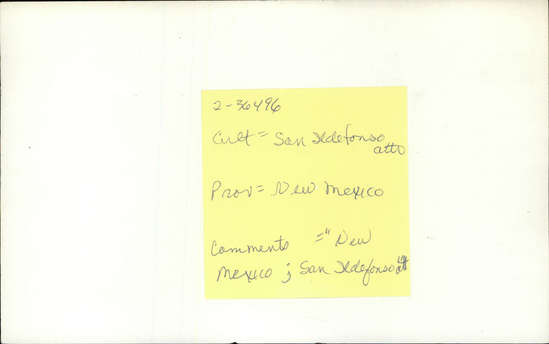 2-36496
Cult = San Ildefonso
atto
Prov = New Mexico
Comments = "New
Mexico ; San Ildefonso